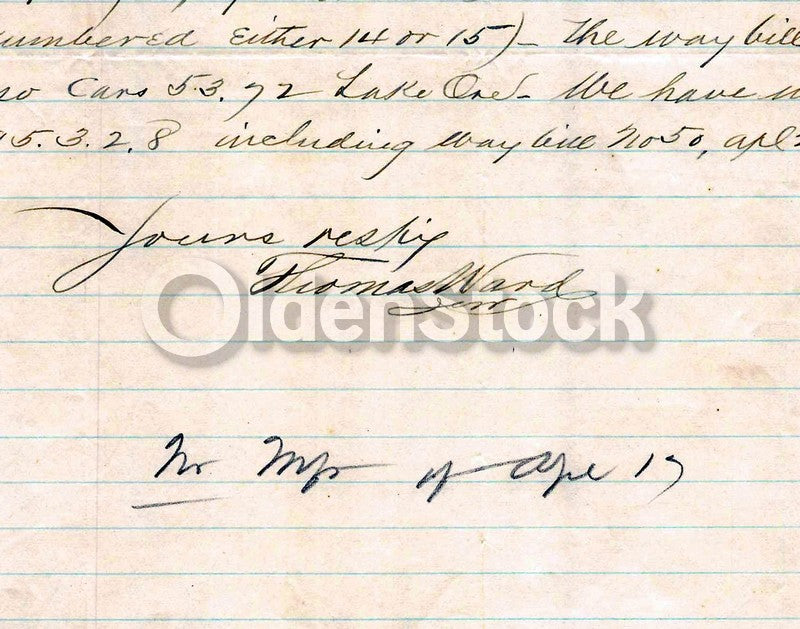 numbered either 14 or 15)- The way bill
no Cars 53.72 Lake Ore- We have
95.3.2.8 including way bill No 50, apl
Yours respy
Thomas Ward
OldenStock
of Ape 17